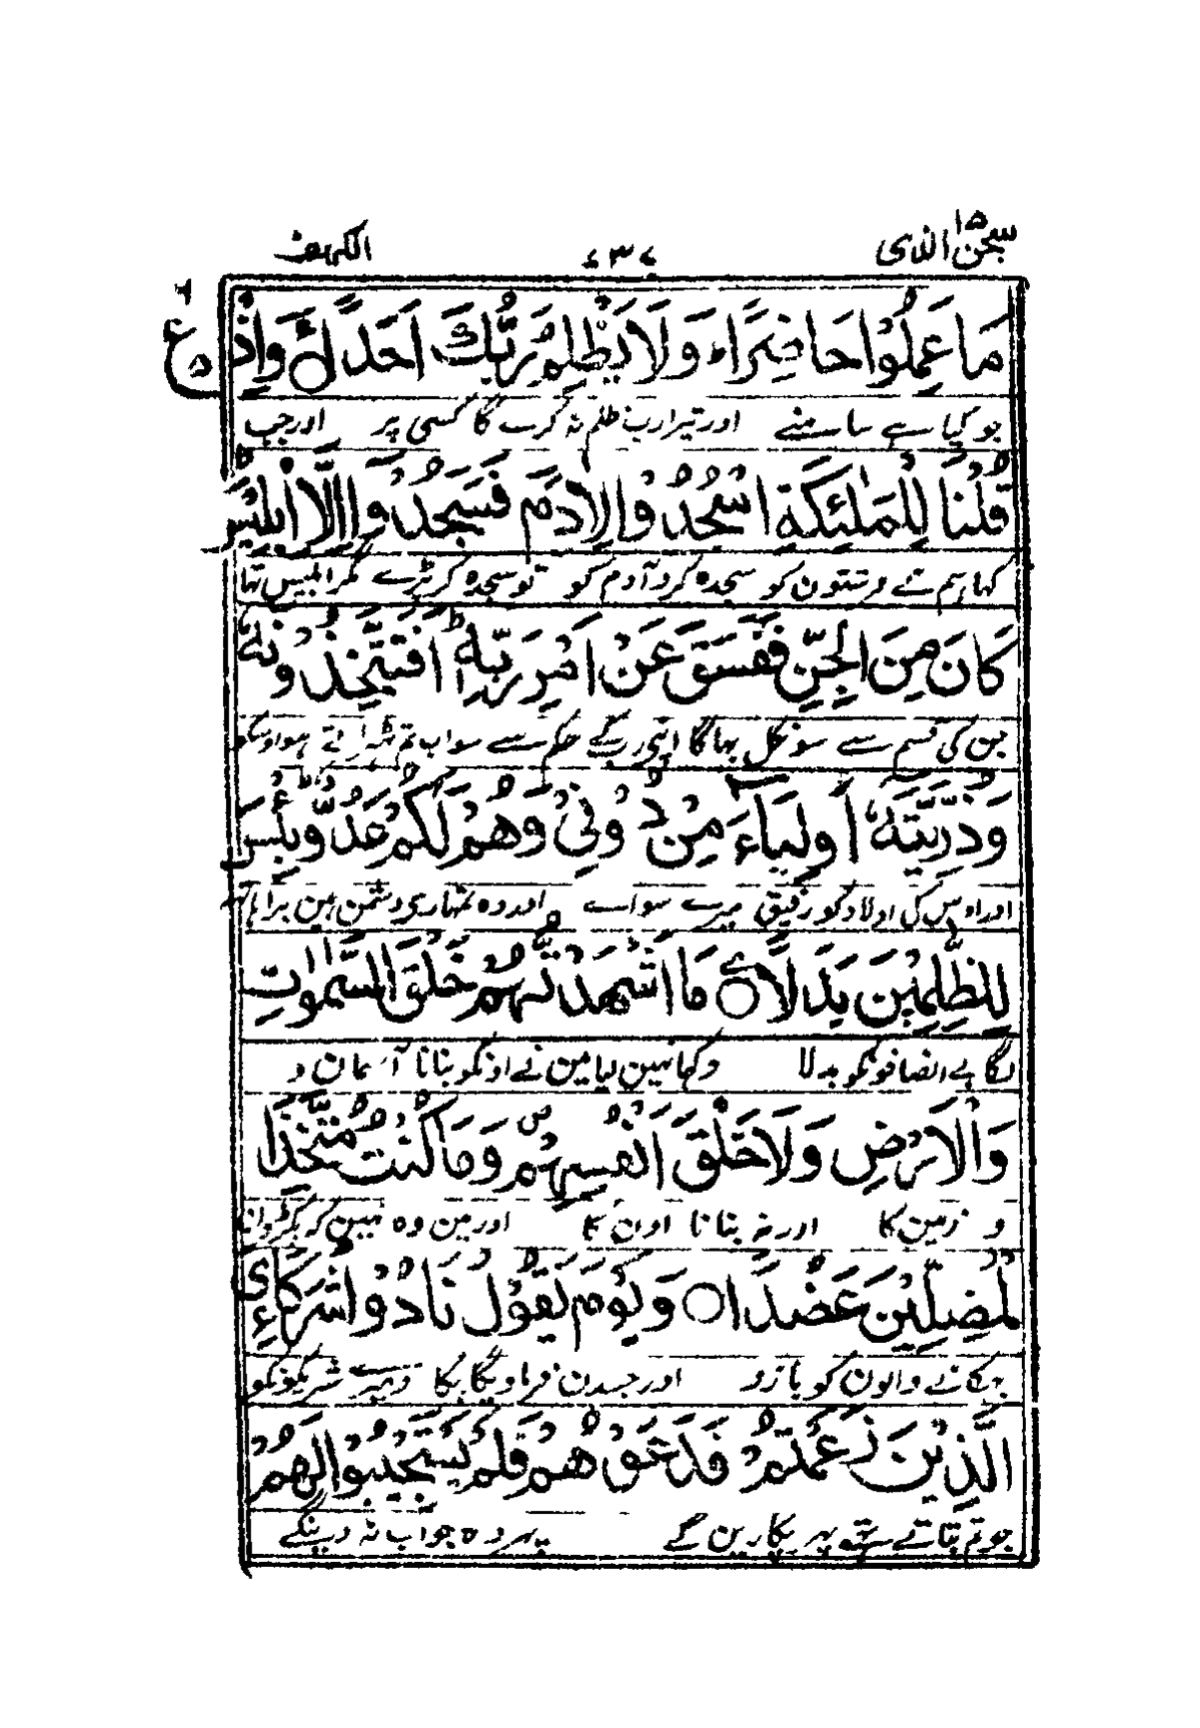 سبحن الذى ١٥
٤٣٧
الكهف
مَا عَمِلُوْا حَاضِرًا ؕ وَلَا يَظْلِمُ رَبُّكَ اَحَدًا ۝ وَاِذْ
ع
جو کیا ہے سامنے اور تیرا رب ظلم نہ کرے گا کسی پر اور جب
قُلْنَا لِلْمَلٰٓئِكَةِ اسْجُدُوْا لِاٰدَمَ فَسَجَدُوْۤا اِلَّاۤ اِبْلِيْسَ
کہا ہم نے فرشتون کو سجدہ کرو آدم کو تو سجدہ کر پڑے مگر ابلیس تھا
كَانَ مِنَ الْجِنِّ فَفَسَقَ عَنْ اَمْرِ رَبِّهٖ ؕ اَفَتَتَّخِذُوْنَهٗ
جن کی قسم سے سو نکل بھاگا اپنے رب کے حکم سے سو اب تم ٹھہراتے ہو اوسکو
وَذُرِّيَّتَهٗۤ اَوْلِيَآءَ مِنْ دُوْنِيْ وَهُمْ لَكُمْ عَدُوٌّ ؕ بِئْسَ
اور اوس کی اولاد کو رفیق میرے سواے اور وہ تمہاری دشمن ہین برا ہاتھ
لِلظّٰلِمِيْنَ بَدَلًا ۝ مَاۤ اَشْهَدْتُّهُمْ خَلْقَ السَّمٰوٰتِ
لگا بے انصافونکو بدلا دکھا نہین لیا مین نے اونکو بنانا آسمان و
وَالْاَرْضِ وَلَا خَلْقَ اَنْفُسِهِمْ ص وَمَا كُنْتُ مُتَّخِذَ
و زمین کا اور نہ بنانا اون کا اور مین وہ نہین کہ پکڑوں
الْمُضِلِّيْنَ عَضُدًا ۝ وَيَوْمَ يَقُوْلُ نَادُوْا شُرَكَآءِيَ
بہکانے والون کو بازو اور جسدن فرماویگا پکارو میرے شریکونکو
الَّذِيْنَ زَعَمْتُمْ فَدَعَوْهُمْ فَلَمْ يَسْتَجِيْبُوْا لَهُمْ
جو تم بتاتے تھے پھر پکارین گے پھر وہ جواب نہ دینگے